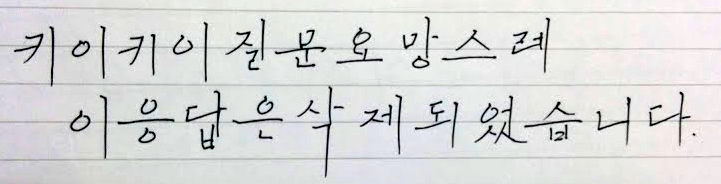 키이키이질문요망스레
이응답은삭제되었습니다.